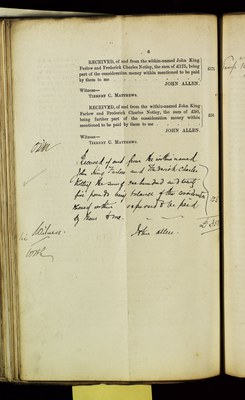 6
RECEIVED, of and from the within-named John King
Farlow and Frederick Charles Notley, the sum of £175, being
part of the consideration money within mentioned to be paid
by them to me
£175
JOHN ALLEN.
Witness—
TIERCEY C. MATTHEWS.
RECEIVED, of and from the within-named John King
Farlow and Frederick Charles Notley, the sum of £50,
being further part of the consideration money within
mentioned to be paid by them to me
£50
JOHN ALLEN.
Witness—
TIERCEY C. MATTHEWS.
Received of and from the within named
John King Farlow and Frederick Charles
Notley the sum of one hundred and twenty
five pounds being balance of the consideration
money within expressed to be paid
by them to me
125
£350
Witness
John Allen